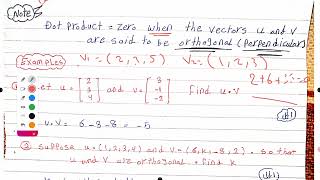 Note
Dot product = zero when the vectors u and v
are said to be orthogonal (perpendicular)
Examples V₁ = (2,3,5) V₂ = (1,2,3)
2+6+
et u = [2 3 4] and v = [3 -1 -2] find u·v
u·v = 6 -3 -8 = -5
② suppose u = (1,2,3,4) and v = (6,k,-8,2) · so that
u and v are orthogonal · find k